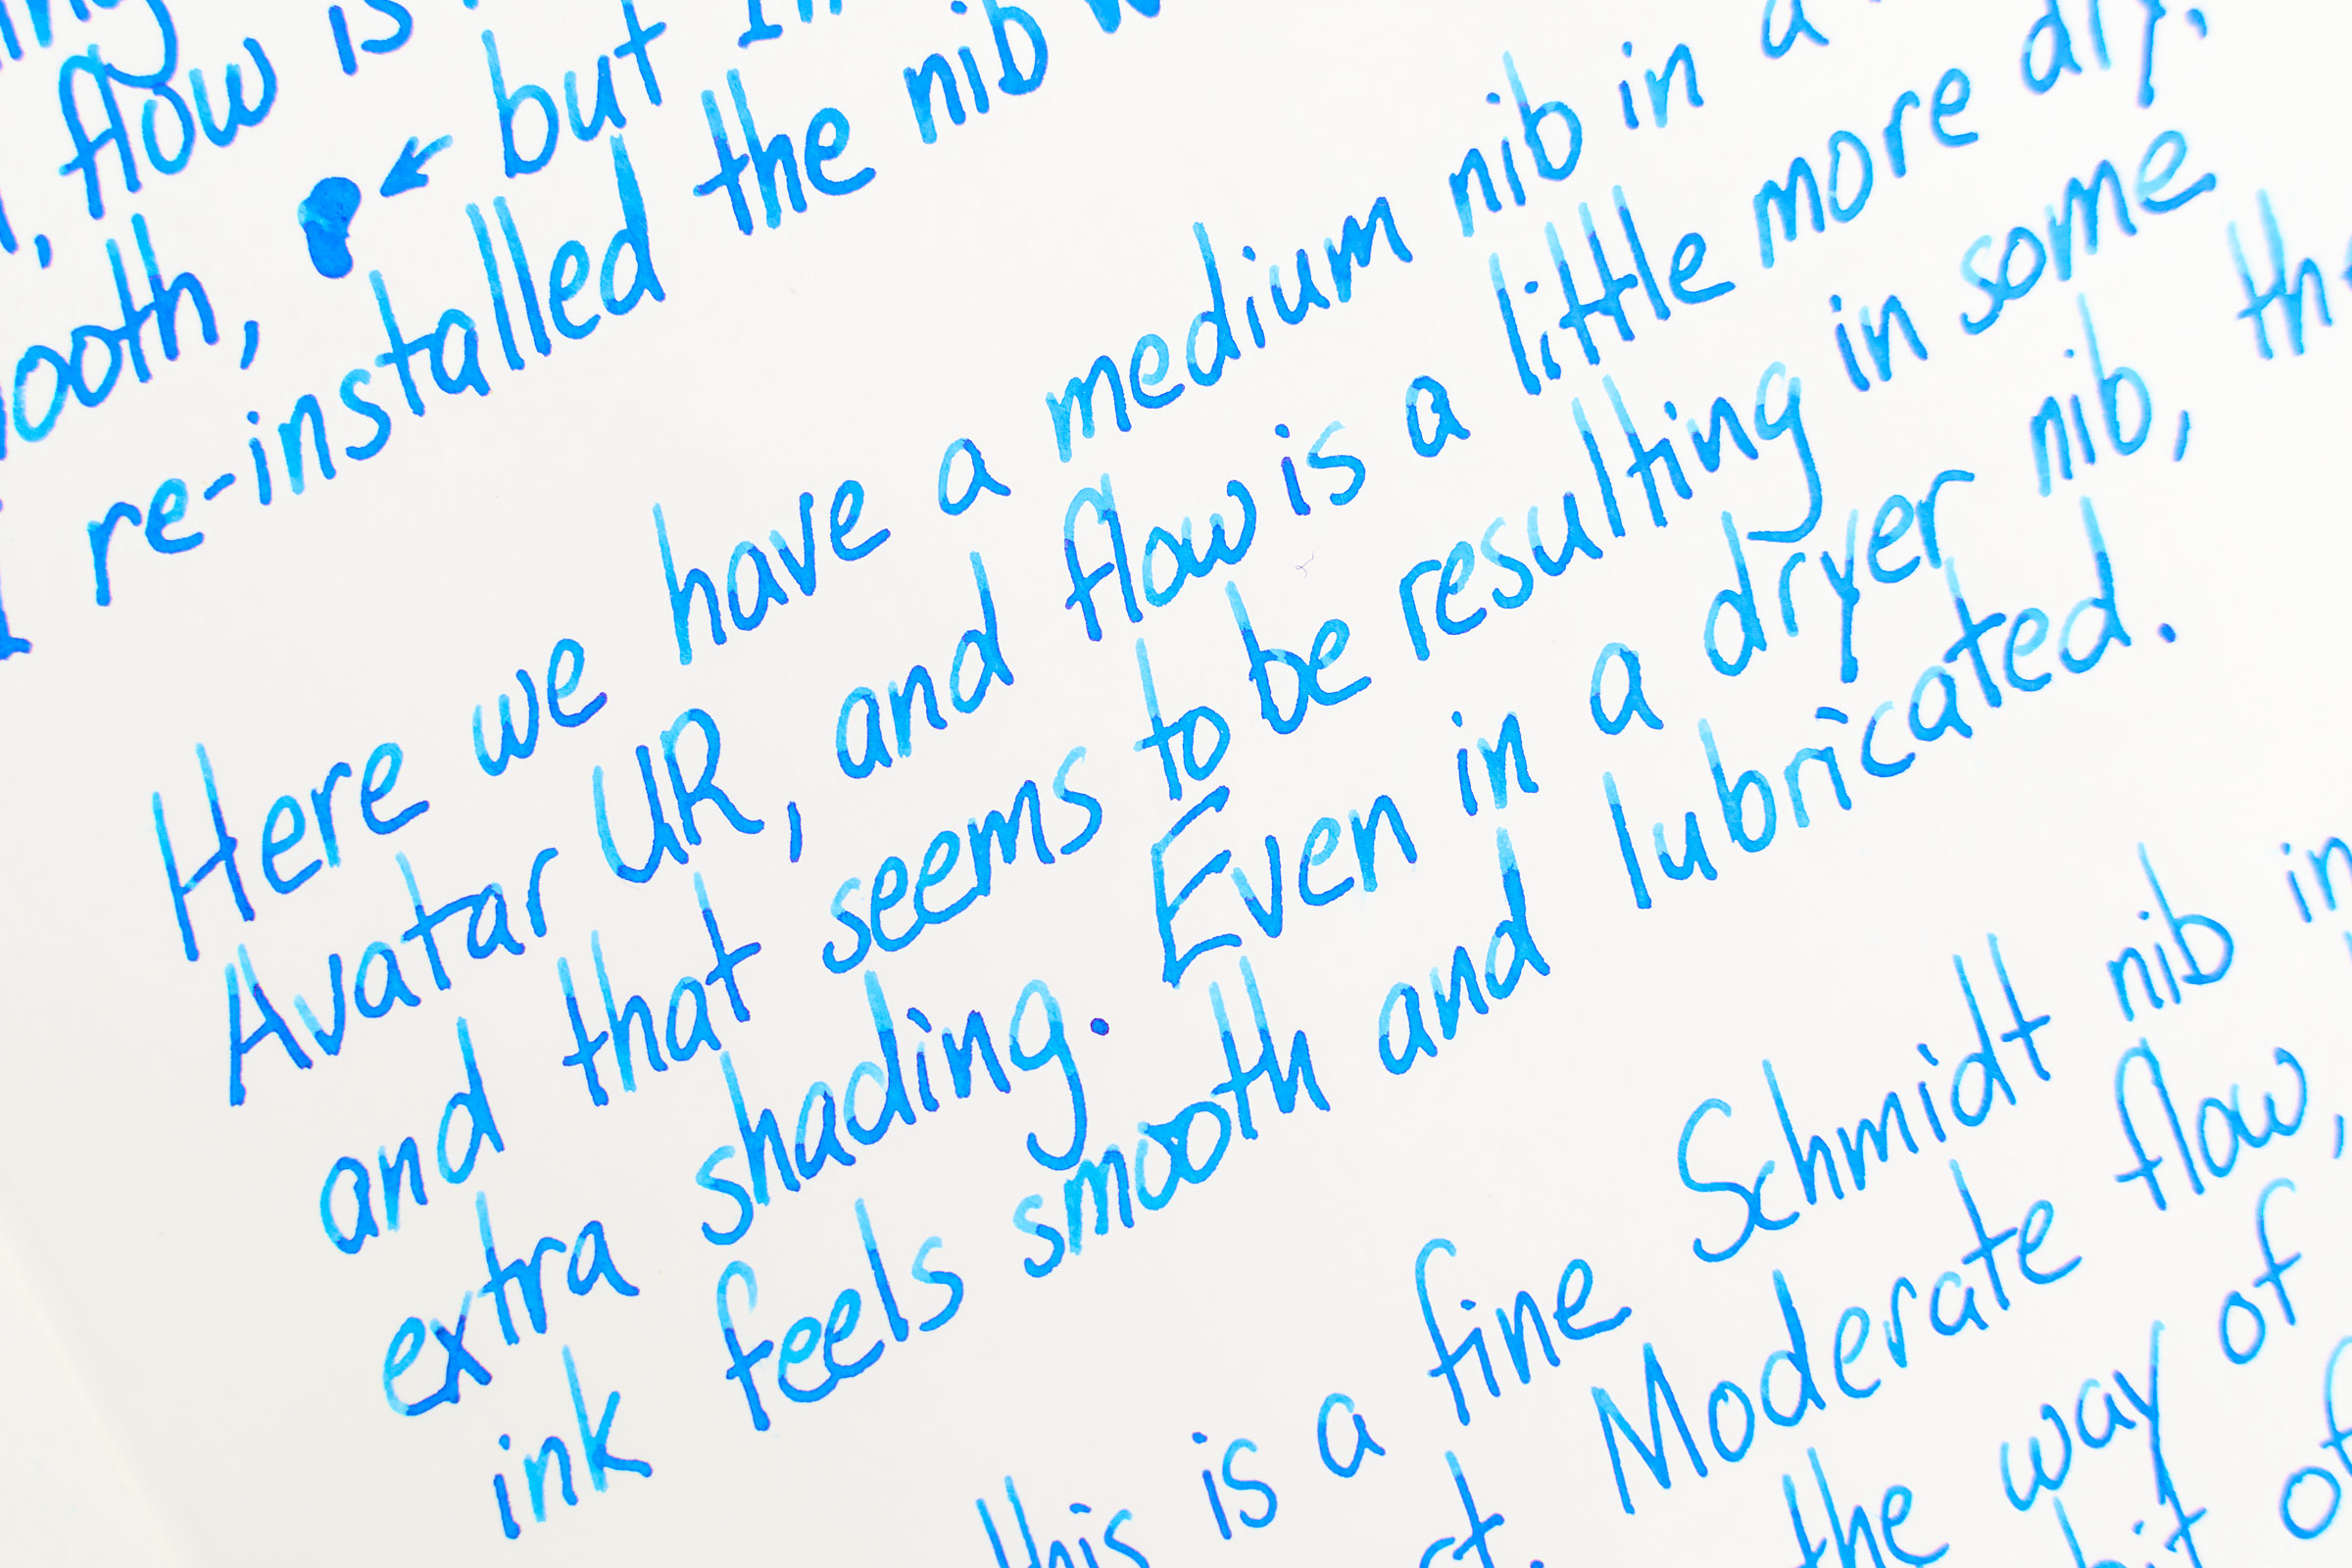 flow is
but
re-installed the nib
Here we have a medium nib in a
Avatar UR, and flow is a little more dry,
and that seems to be resulting in some
extra shading. Even in a dryer nib, the
ink feels smooth and lubricated.
this is a fine Schmidt nib in
Moderate flow,
the way of
bit of